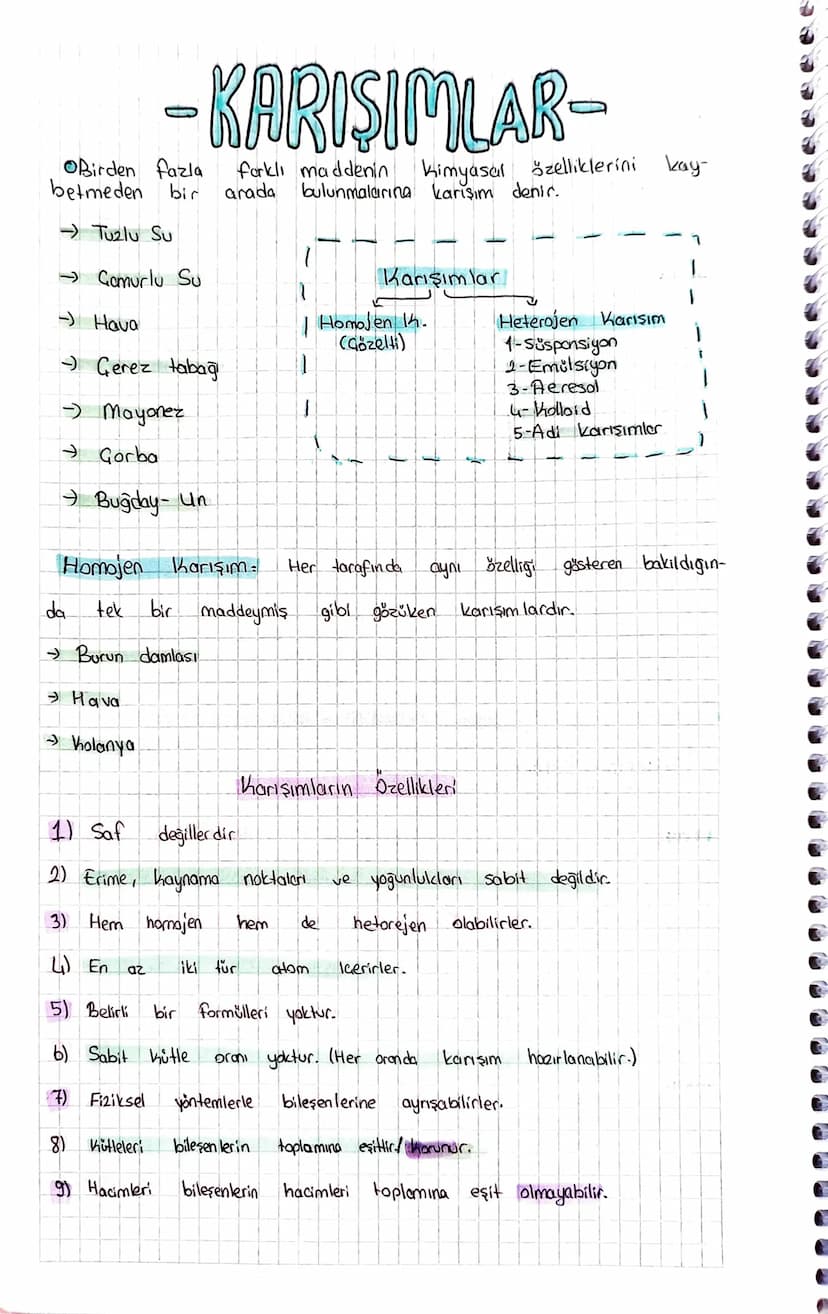 -KARIŞIMLAR-
Birden fazla farklı maddenin kimyasal özelliklerini kay-
betmeden bir arada bulunmalarına karışım denir.
→ Tuzlu Su
→ Çamurlu Su
→ Hava
→ Çerez tabağı
→ Mayonez
→ Çorba
→ Buğday-Un
Karışımlar
Homojen K.
(Çözelti)
Heterojen Karışım
1-Süspansiyon
2-Emülsiyon
3-Aeresol
4-Kolloid
5-Adi Karışımlar
Homojen Karışım: Her tarafında aynı özelliği gösteren bakıldığın-
da tek bir maddeymiş gibi gözüken karışımlardır.
→ Burun damlası
→ Hava
→ Kolonya
Karışımların Özellikleri
1) Saf değillerdir
2) Erime, kaynama noktaları ve yoğunlukları sabit değildir.
3) Hem homojen hem de hetorejen olabilirler.
4) En az iki tür atom içerirler.
5) Belirli bir formülleri yoktur.
6) Sabit kütle oranı yoktur. (Her oranda karışım hazırlanabilir.)
7) Fiziksel yöntemlerle bileşenlerine ayrışabilirler.
8) Kütleleri bileşenlerin toplamına eşittir/korunur.
9) Hacimleri bileşenlerin hacimleri toplamına eşit olmayabilir.